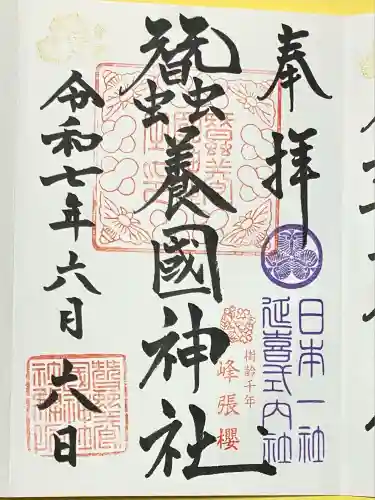 奉拝
日本一社
延喜式内社
蠶養國神社
樹齢千年
峰張櫻
令和七年六月六日